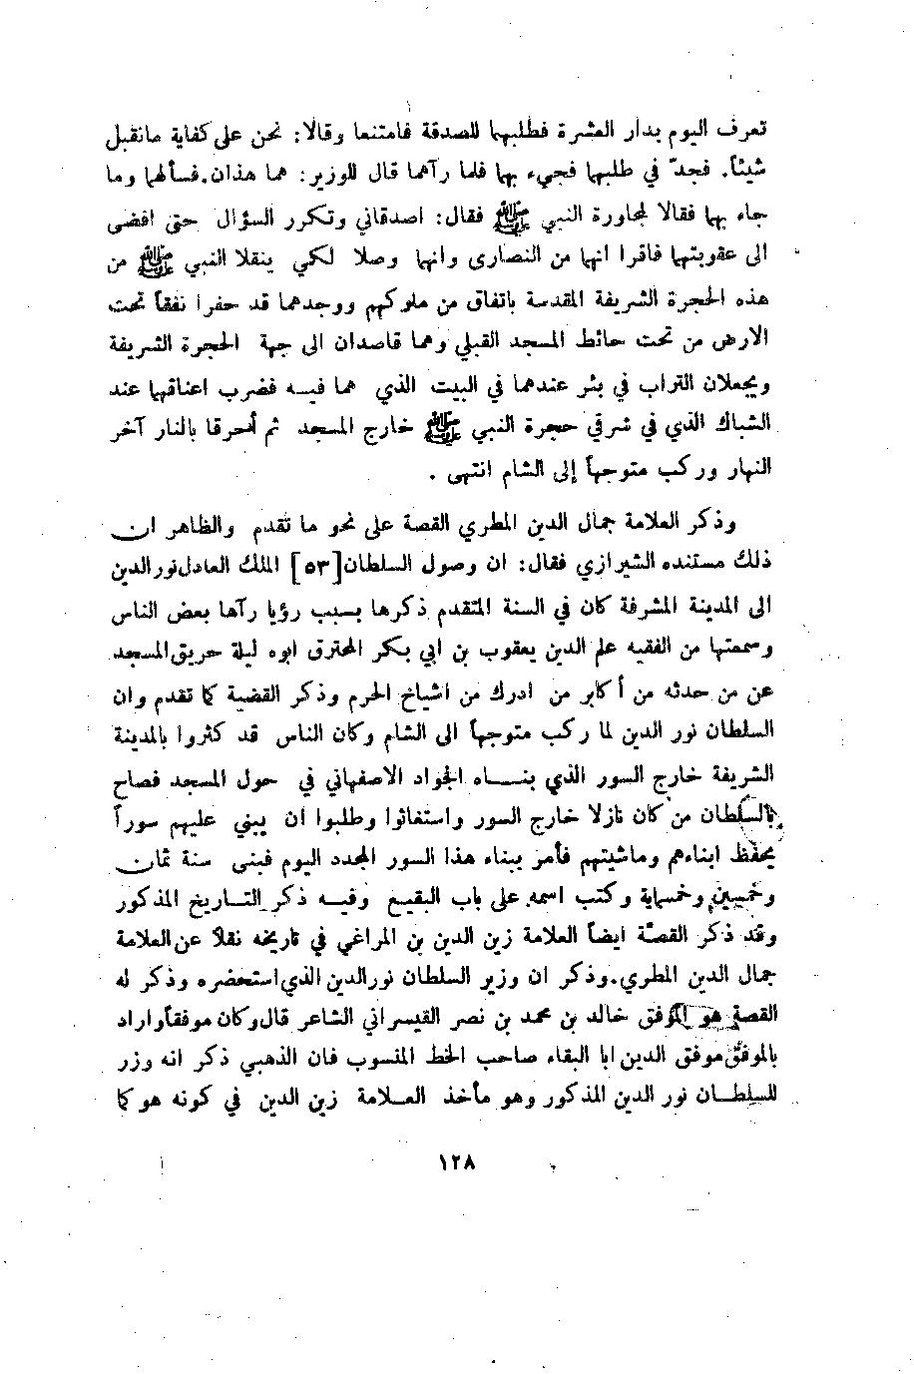 تعرف اليوم بدار العشرة فطلبهما للصدقة فامتنعا وقالا: نحن على كفاية مانقبل
شيئاً. فجدّ في طلبهما فجيء بهما فلما رآهما قال للوزير: هما هذان.فسألهما وما
جاء بهما فقالا لمجاورة النبي ﷺ فقال: اصدقاني وتكرر السؤال حتى افضى
الى عقوبتهما فاقرا انهما من النصارى وانهما وصلا لكي ينقلا النبي ﷺ من
هذه الحجرة الشريفة المقدسة باتفاق من ملوكهم ووجدهما قد حفرا نفقاً تحت
الارض من تحت حائط المسجد القبلي وهما قاصدان الى جهة الحجرة الشريفة
ويجعلان التراب في بئر عندهما في البيت الذي هما فيه فضرب اعناقهما عند
الشباك الذي في شرقي حجرة النبي ﷺ خارج المسجد ثم أحرقا بالنار آخر
النهار وركب متوجهاً إلى الشام انتهى .
وذكر العلامة جمال الدين المطري القصة على نحو ما تقدم والظاهر ان
ذلك مستنده الشيرازي فقال: ان وصول السلطان[٥٣] الملك العادل نور الدين
الى المدينة المشرفة كان في السنة المتقدم ذكرها بسبب رؤيا رآها بعض الناس
وسمعتها من الفقيه علم الدين يعقوب بن ابي بكر المحترق ابوه ليلة حريق المسجد
عن من حدثه من أكابر من ادرك من اشياخ الحرم وذكر القضية كما تقدم وان
السلطان نور الدين لما ركب متوجهاً الى الشام وكان الناس قد كثروا بالمدينة
الشريفة خارج السور الذي بناه الجواد الاصفهاني في حول المسجد فصاح
بالسلطان من كان نازلا خارج السور واستغاثوا وطلبوا ان يبني عليهم سوراً
يحفظ ابناءهم وماشيتهم فأمر ببناء هذا السور المجدد اليوم فبنى سنة ثمان
وخمسين وخمسماية وكتب اسمه على باب البقيع وفيه ذكر التاريخ المذكور
وقد ذكر القصّة ايضاً العلامة زين الدين بن المراغي في تاريخه نقلاً عن العلامة
جمال الدين المطري.وذكر ان وزير السلطان نورالدين الذي استحضره وذكر له
القصة هو الموفق خالد بن محمد بن نصر القيسراني الشاعر قال وكان موفقاً واراد
بالموفق موفق الدين ابا البقاء صاحب الخط المنسوب فان الذهبي ذكر انه وزر
للسلطان نور الدين المذكور وهو مأخذ العلامة زين الدين في كونه هو كما
١٢٨